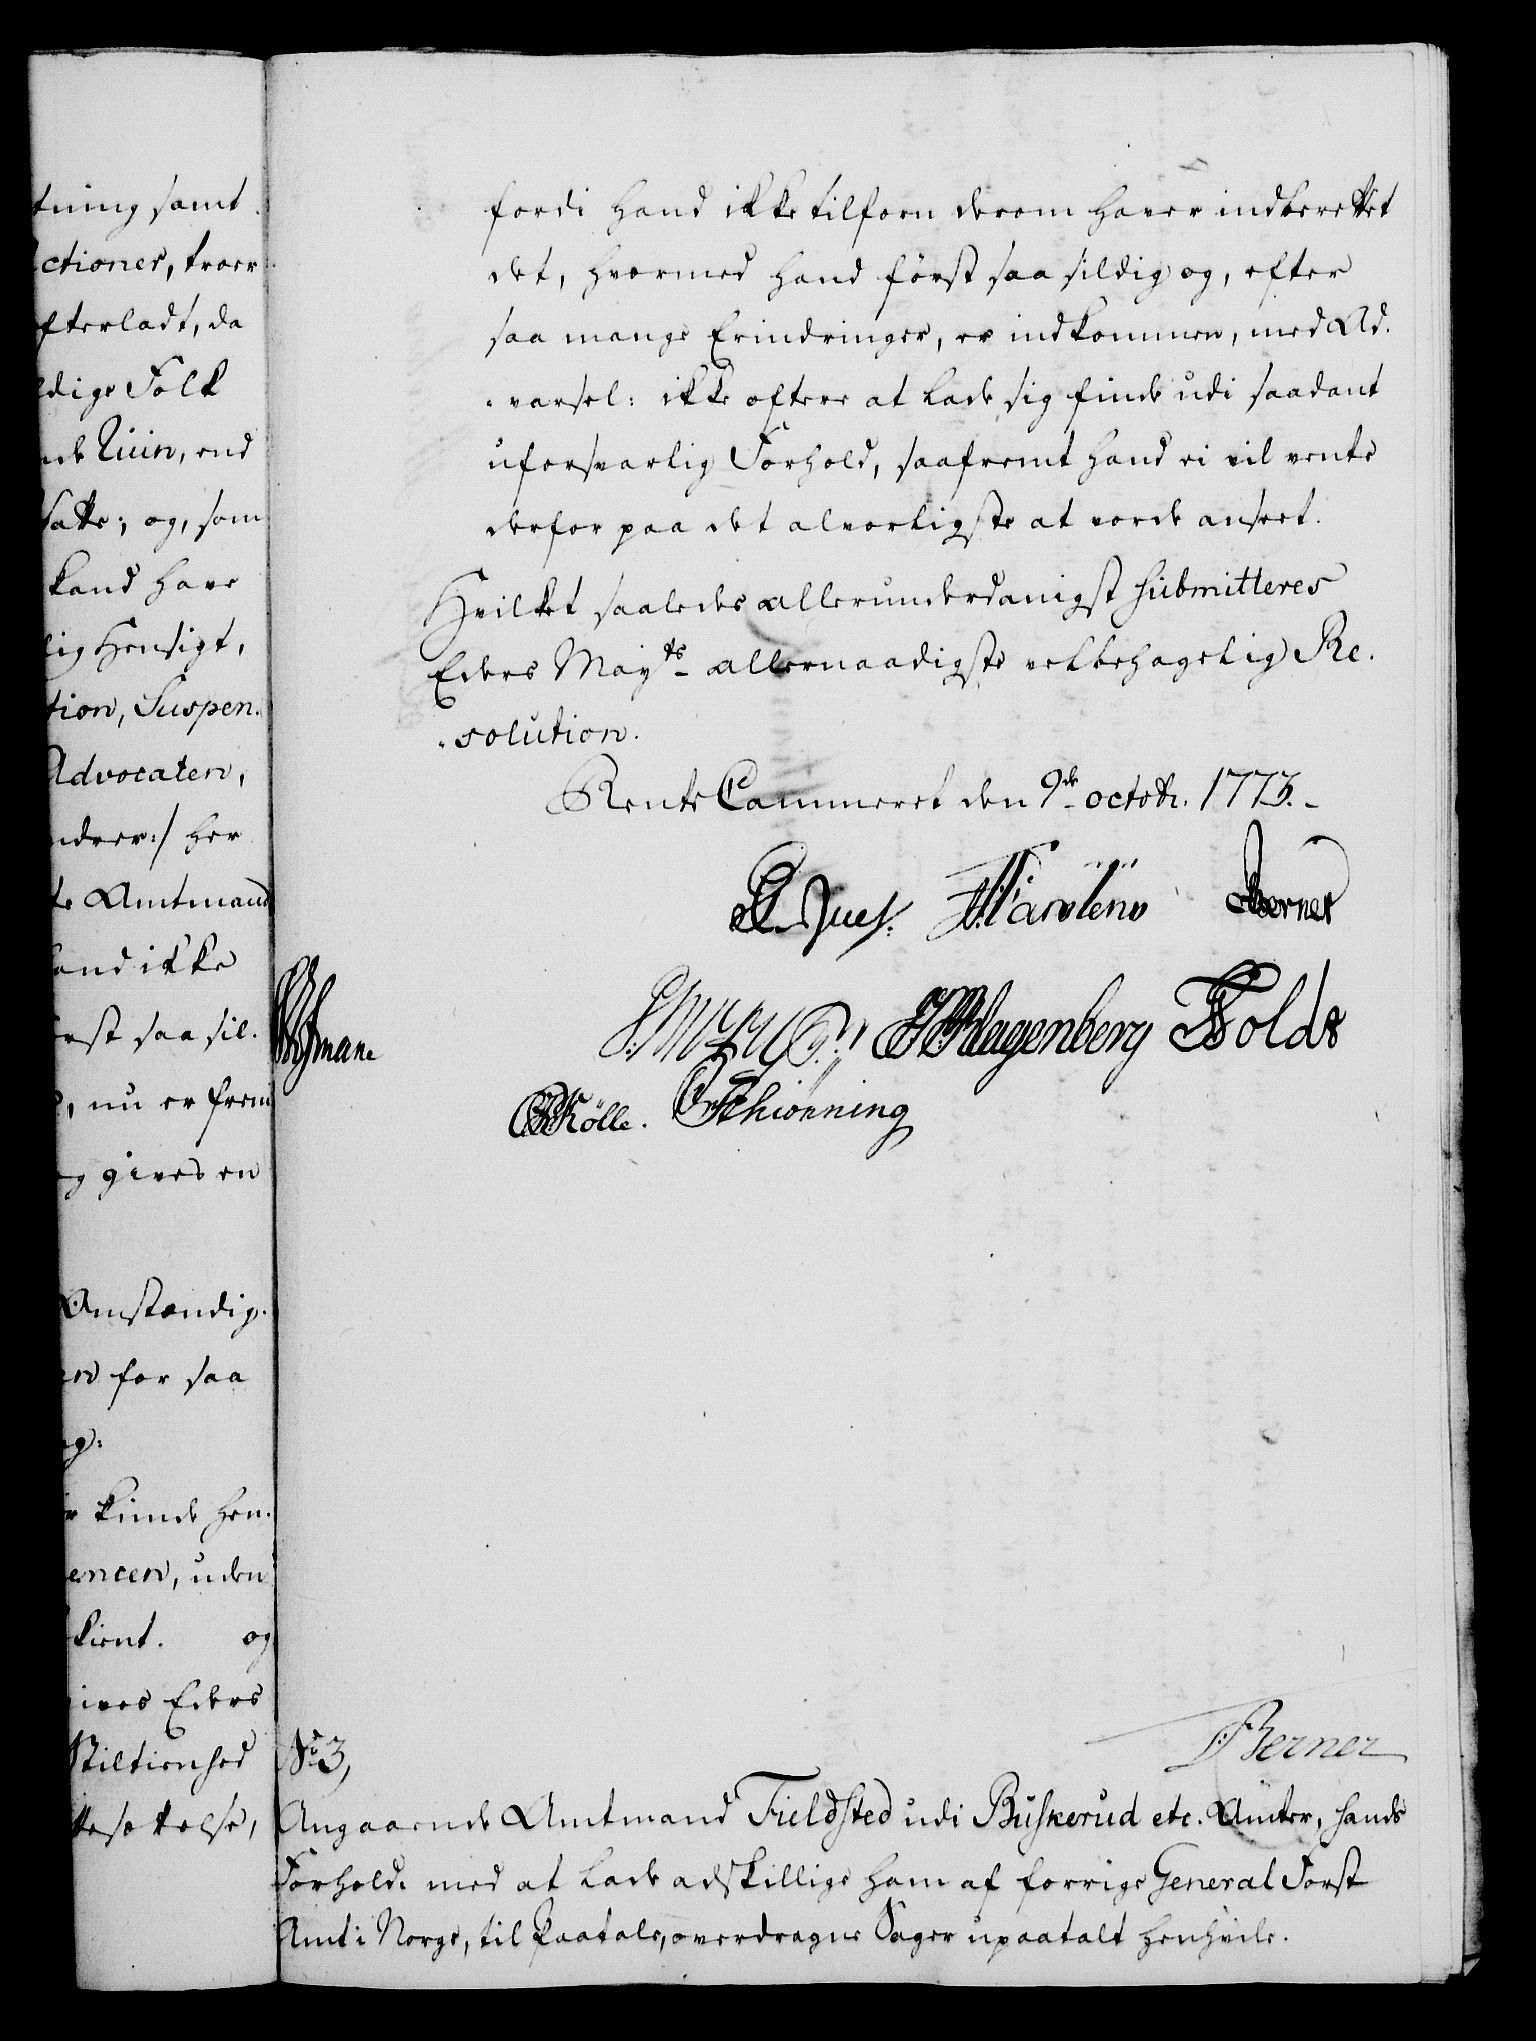 tning samt
ctioner, troer
fterladt, da
ldige Folk
nde Ruin, end
satte; og, som
kand have
lig Hensigt,
tion, Suspen-
Advocaten,
ndrer:/ her
te Amtmand
hand ikke
erst saa sil-
, nu er frem
og gives en
Omstændig-
en for saa
og:
kunde hen-
encen, uden
kient. og
ives Eders
Stiltienhed
ttesættelse,
fordi hand ikke tilforn derom haver indberettet
det, hvormed hand først saa sildig og, efter
saa mange Erindringer, er indkommen, med Ad-
-varsel: ikke oftere at lade sig finde udi saadant
uforsvarlig Forhold, saafremt hand ei vil vente
derfor paa det alvorligste at vorde anseet.
Hvilket saaledes allerunderdanigst submitteres
Eders Mayts allernaadigste velbehagelig Re-
-solution.
Rente Cammeret den 9de octobr. 1773.
Juel. Berner
Klagenberg Holdt
Kölle. Schiönning
No 3,
Berner
Angaaende Amtmand Fieldsted udi Buskerud etc. Amter, hands
Forhold. med at lade adskillige ham af forrige General Forst
Amt i Norge, til Paatale, overdragne Sager upaatalt henhvile.